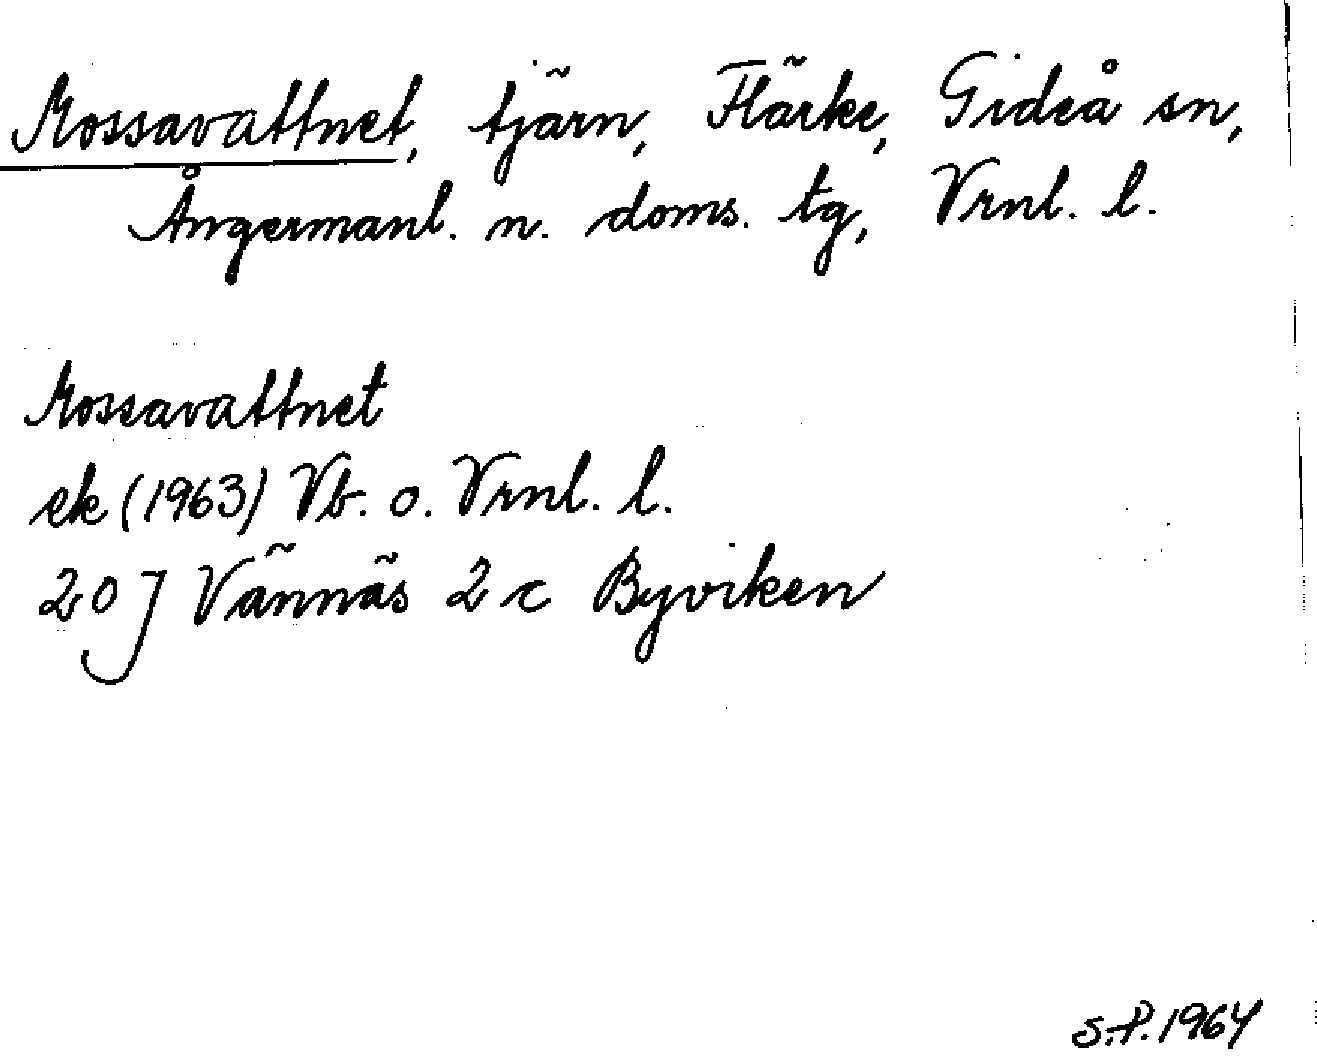 Mossavattnet, tjärn, Flärke, Gideå sn,
Ångermanl. n. doms. tg, Vrnl. l.
Mossavattnet
ek (1963) Vb. o. Vrnl. l.
20 J Vännäs 2 c Byviken
S.P. 1964